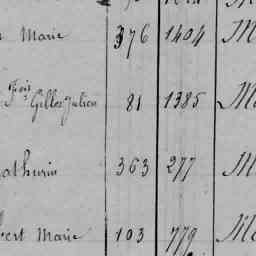 Marie 376 1404 M
Fçois Gilles Julien 81 1385 M
athurin 363 277 M
bert Marie 103 779 M